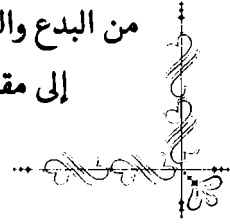 من البدع وال
إلى مق